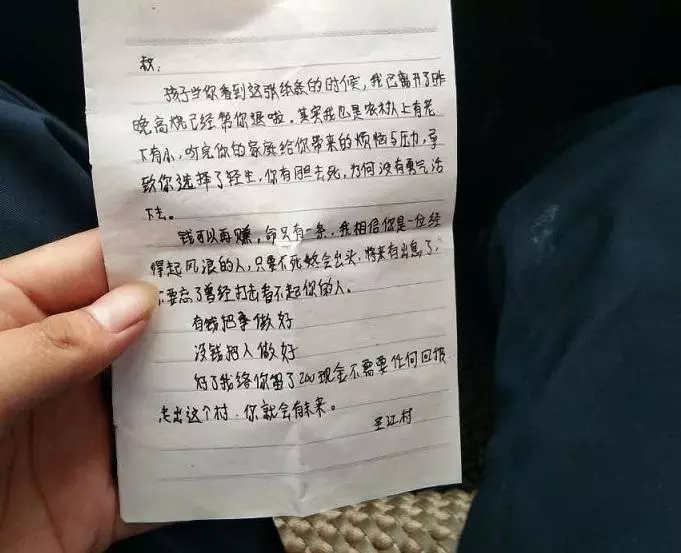 孩子当你看到这张纸条的时候，我已离开了昨
晚高烧已经帮你退啦。其实我也是农村人上有老
下有小，听完你的家庭给你带来的烦恼与压力，导
致你选择了轻生，你有胆去死，为何没有勇气活
下去。
钱可以再赚，命只有一条，我相信你是一位经
得起风浪的人，只要不死终会出头，将来有出息了，
不要忘了曾经打击看不起你的人。
有钱把事做好
没钱把人做好
对了我给你留了200现金不需要任何回报
走出这个村，你就会有未来。
江村